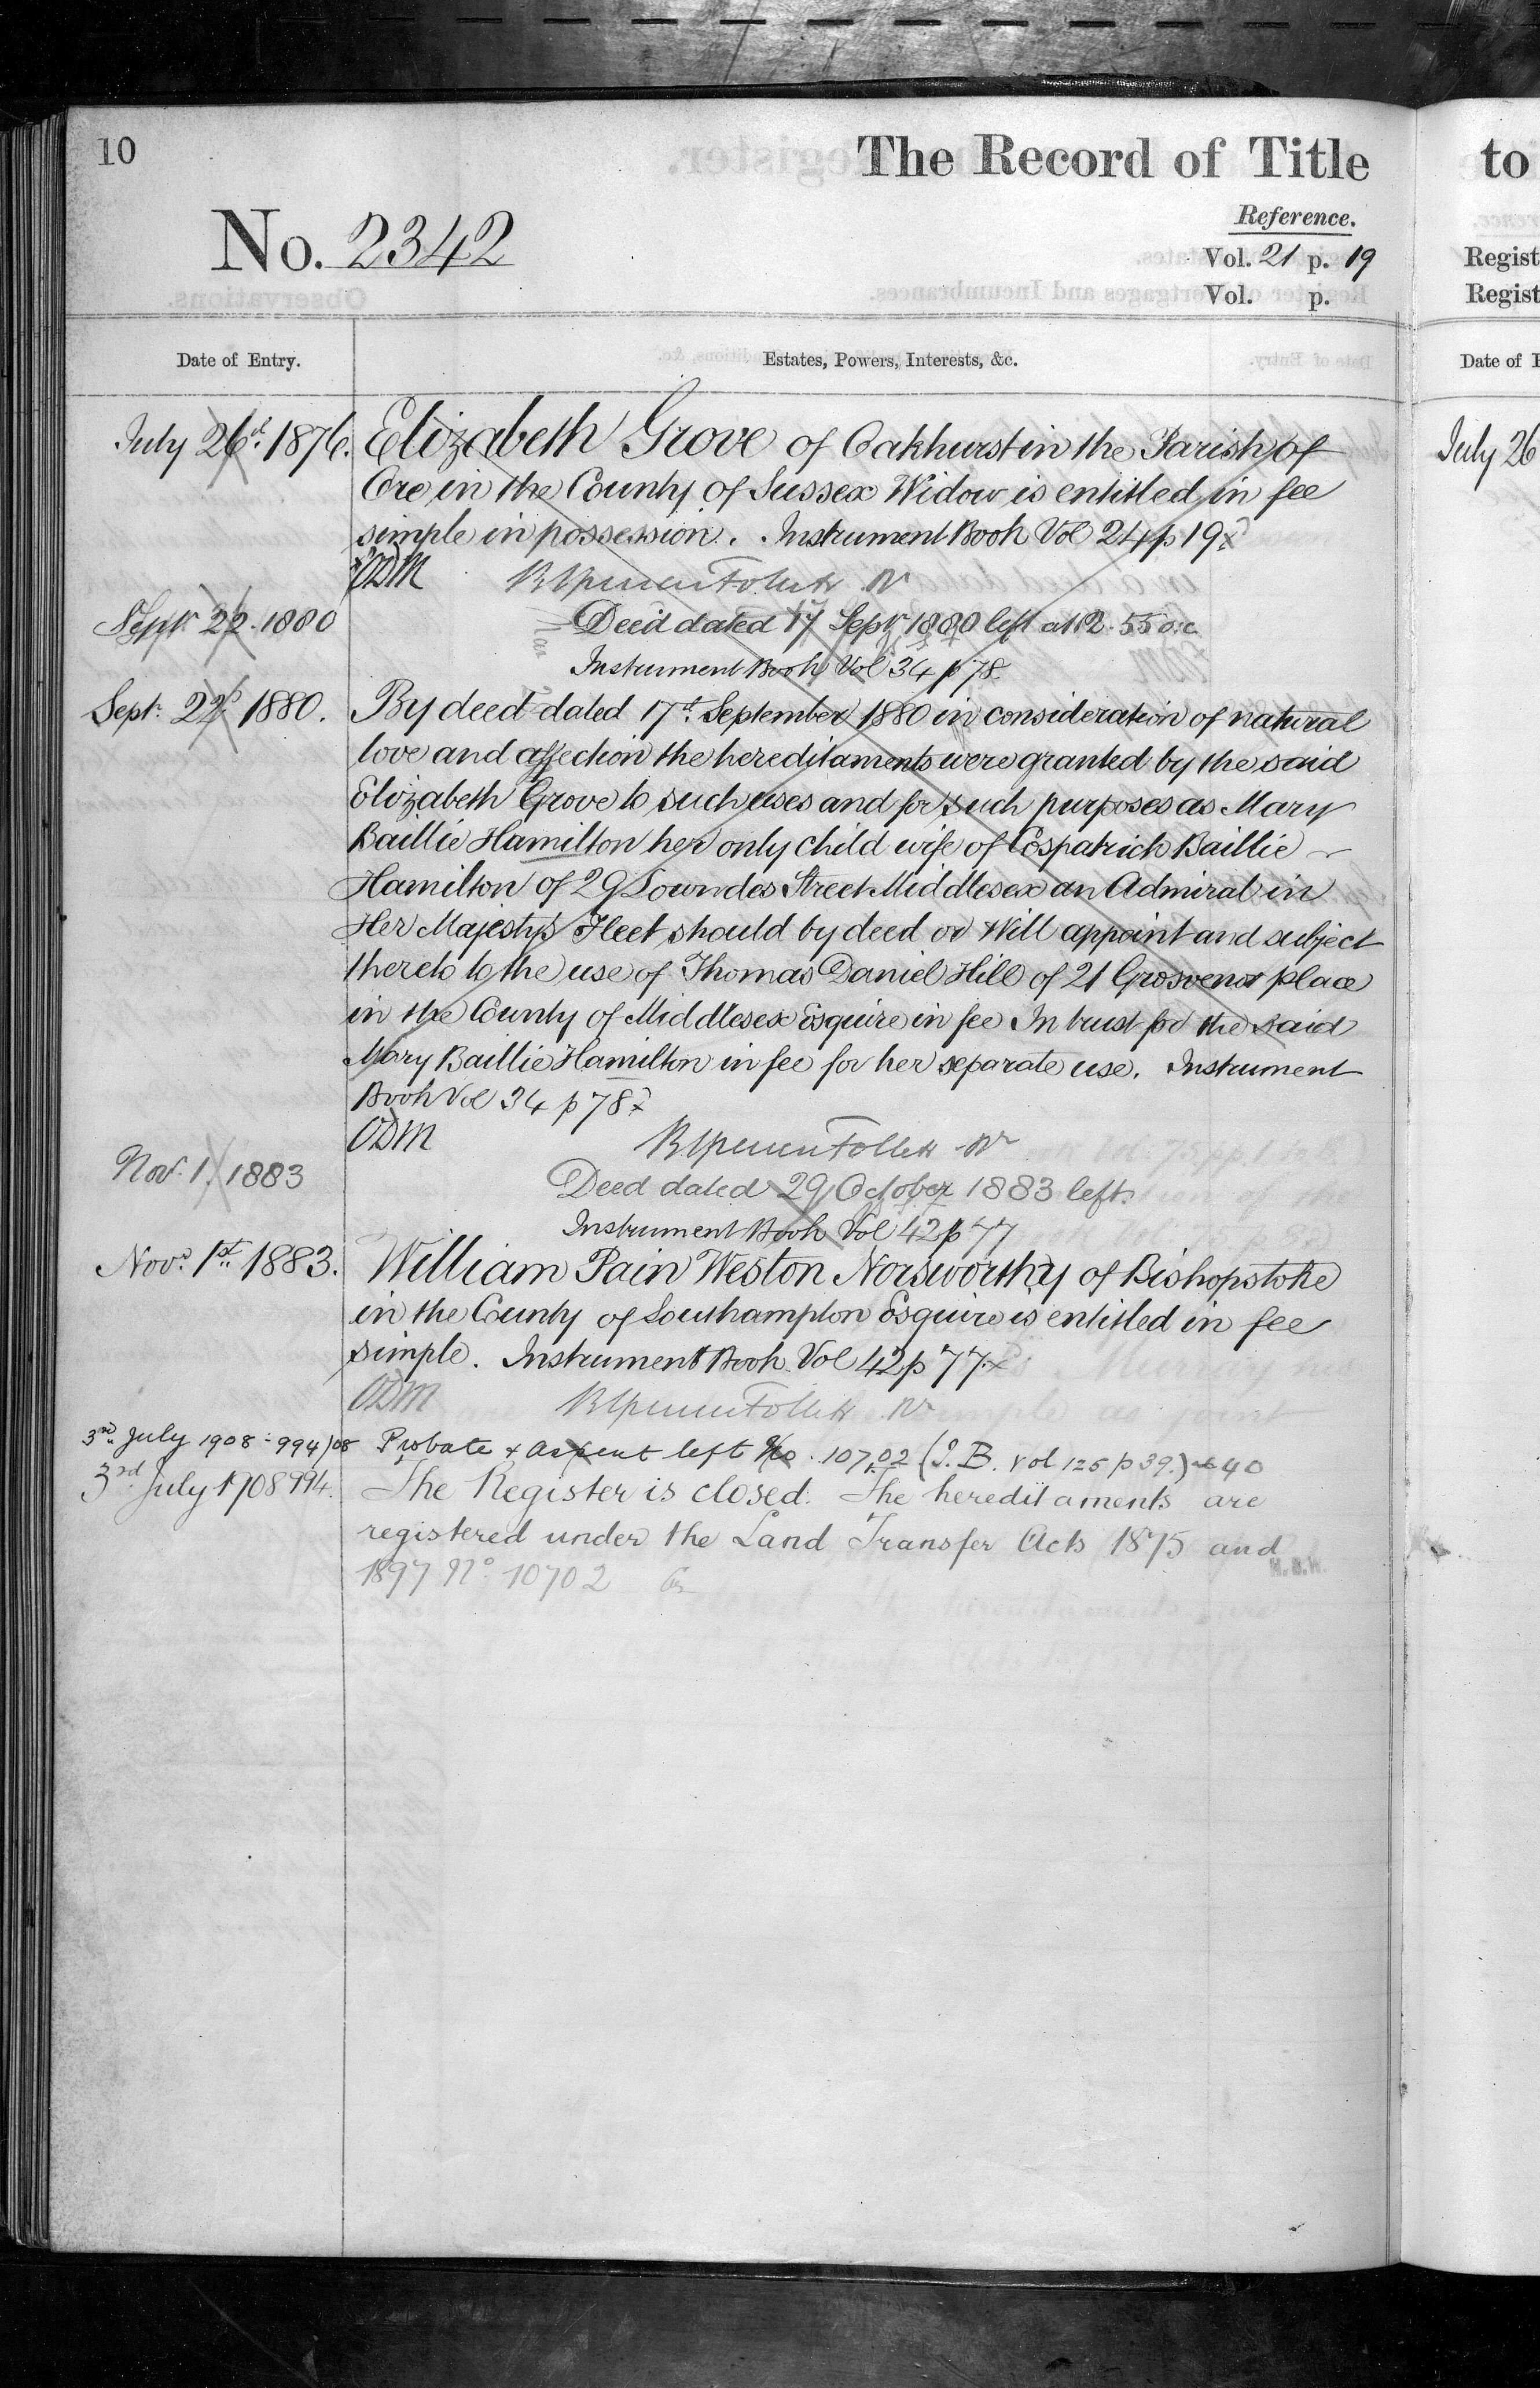 10
The Record of Title
to
No. 2342
Reference.
Vol. 21 p. 19
Vol. p.
Regist
Regist
Date of Entry.
Estates, Powers, Interests, &c.
Date of
July 26th. 1876. Elizabeth Grove of Oakhurst in the Parish of
Ore in the County of Sussex Widow is entitled in fee
simple in possession. Instrument Book Vol 24 p 19.
July 26
ODM
Sept 22. 1880
Deed dated 17 Septr 1880 left at 12.55 o.c
Instrument Book Vol 34 p 78.
Sept. 22d 1880. By deed dated 17th. September 1880 in consideration of natural
love and affection the hereditaments were granted by the said
Elizabeth Grove to such uses and for such purposes as Mary
Baillie Hamilton her only child wife of Cospatrick Baillie
Hamilton of 29 Lowndes Street Middlesex an Admiral in
Her Majesty's Fleet should by deed or Will appoint and subject
thereto to the use of Thomas Daniel Hill of 21 Grosvenor place
in the County of Middlesex Esquire in fee In trust for the said
Mary Baillie Hamilton in fee for her separate use. Instrument
Book Vol 34 p 78.
ODM
Nov. 1. 1883
Deed dated 29 October 1883 left
Instrument Book Vol 42 p 77
Novr. 1st. 1883. William Pain Weston Norsworthy of Bishopstoke
in the County of Southampton Esquire is entitled in fee
simple. Instrument Book Vol 42 p 77.
ODM
3rd. July 1908 - 994/08 Probate & left No. 10702 (I.B. vol 125 p 39.) 40
3rd. July 1908 994. The Register is closed. The hereditaments are
registered under the Land Transfer Acts 1875 and
1897 No. 10702